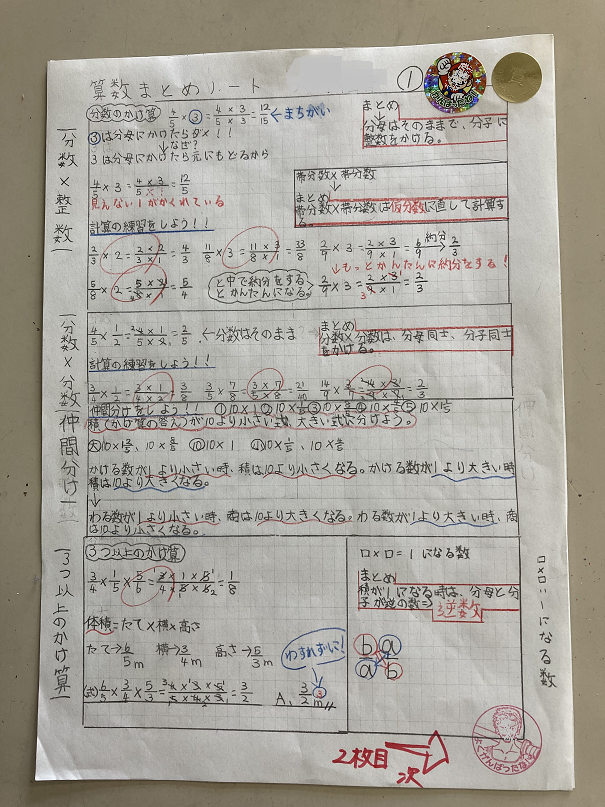 算数まとめノート
①
分数のかけ算
4/5×③=4×3/5×3=12/15←まちがい
③は分母にかけたらダメ!!
↳なぜ?
3は分母にかけたら元にもどるから
4/5×3=4×3/5×1=12/5
見えない1がかくれている
まとめ
分母はそのままで、分子に整数をかける。
帯分数×帯分数
↓
まとめ
帯分数×帯分数は仮分数に直して計算する。
分数×整数
計算の練習をしよう!!
2/3×2=2×2/3×1=4/3
11/8×3=11×3/8×1=33/8
2/9×3=2×3/9×1=6/9 約分→2/3
↳もっとかんたんに約分をする!
5/8×2=5×2/8×1=5/4
と中で約分をするとかんたんになる。
2/9×3=2×3/9×1=2/3
分数×分数
4/5×1/2=4×1/5×2=2/5
←分数はそのまま
まとめ
分数×分数は、分母同士、分子同士をかける。
計算の練習をしよう!!
3/4×1/2=3×1/4×2=3/8
3/5×7/8=3×7/5×8=21/40
仲間分け
仲間分けをしよう!!
積(かけ算の答え)が10より小さい式、大きい式に分けよう。
かける数が1より小さい時、積は10より小さくなる。かける数が1より大きい時
積は10より大きくなる。
↓
わる数が1より小さい時、商は10より大きくなる。わる数が1より大きい時、商
は10より小さくなる。
3つ以上のかけ算
3つ以上のかけ算
3/4×1/5×5/6=3×1×5/4×5×6=1/8
体積=たて×横×高さ
たて→6/5m 横→3/4m 高さ→5/3m
わすれずに!
(式)6/5×3/4×5/3=6×3×5/5×4×3=3/2
A, 3/2m³
□×□=1になる数
まとめ
積が1になる時は、分母と分子が逆の数⇒
逆数
b a
a b
□×□=1になる数
2枚目
次
よくがんばったな